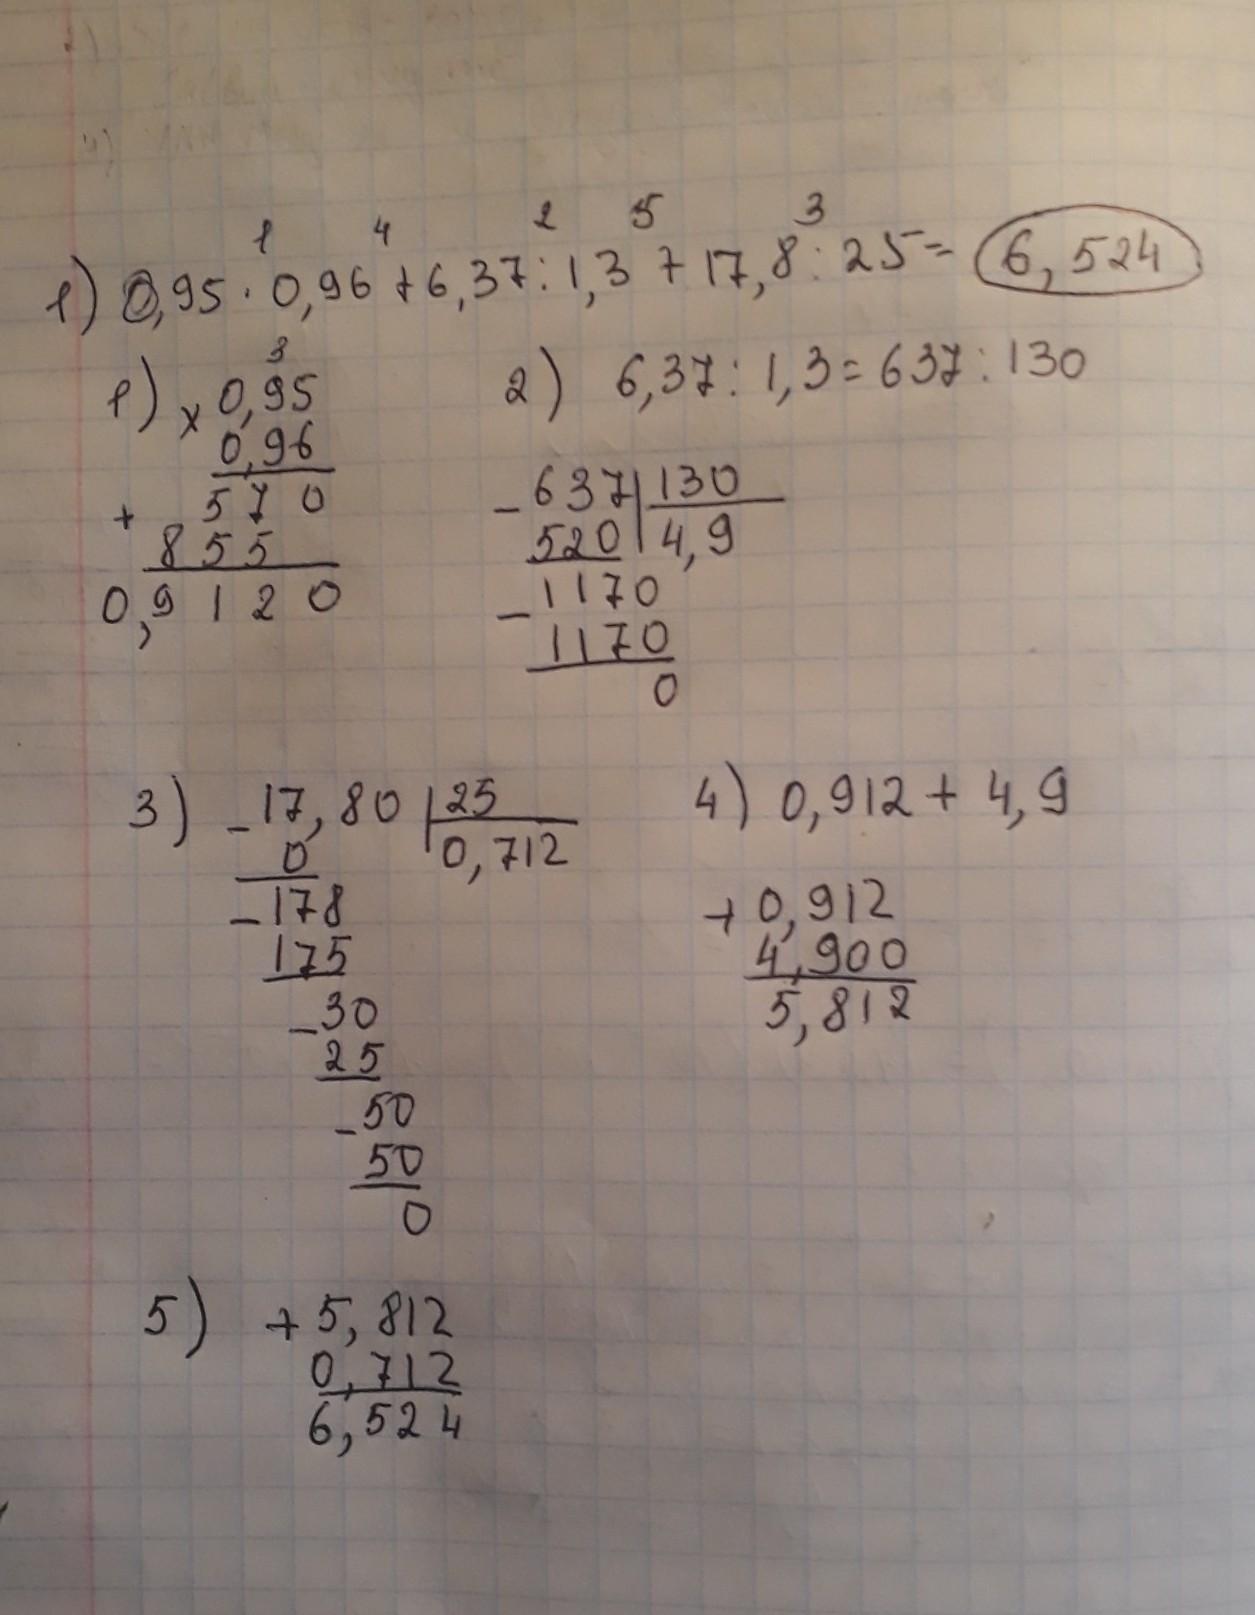 1 4 2 5 3
1) 0,95 · 0,96 + 6,37 : 1,3 + 17,8 : 25 = 6,524
3
1) × 0,95
0,96
+ 570
855
0,9120
2) 6,37 : 1,3 = 637 : 130
- 637 | 130
520 | 4,9
- 1170
1170
0
3) - 17,80 | 25
0 | 0,712
- 178
175
- 30
25
- 50
50
0
4) 0,912 + 4,9
+ 0,912
4,900
5,812
5) + 5,812
0,712
6,524